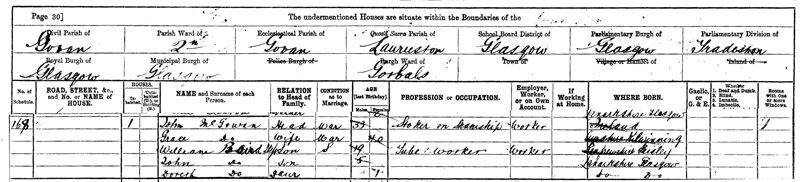 Page 30]
The undermentioned Houses are situate within the Boundaries of the
Civil Parish of Parish Ward of Ecclesiastical Parish of Quoad Sacra Parish of School Board District of Parliamentary Burgh of Parliamentary Division of
Govan 2nd Govan Lauriston Glasgow Glasgow Tradeston
Royal Burgh of Municipal Burgh of Police Burgh of Burgh Ward of Town of Village or Hamlet of Island of
Glasgow Glasgow Gorbals
No. of Schedule. ROAD, STREET, &c., and No. or NAME of HOUSE. HOUSES. Inhabited. NAME and Surname of each Person. RELATION to Head of Family. CONDITION as to Marriage. AGE (last Birthday) Males Females PROFESSION or OCCUPATION. Employer, Worker, or on Own Account. If Working at Home. WHERE BORN. Gaelic, or G. & E. Whether 1. Deaf and Dumb. 2. Blind. 3. Lunatic, Imbecile, Rooms with One or more Windows.
Lanarkshire Glasgow
168 1 John McGowan Head Mar Stoker on Steamship Worker 1
Grace Do Wife Mar 40 Kilwinning
William Baird Stepson S 19 Tube worker Worker Renfrewshire Paisley
John Do Son 5 Lanarkshire Glasgow
Do Daur 1 Do Do